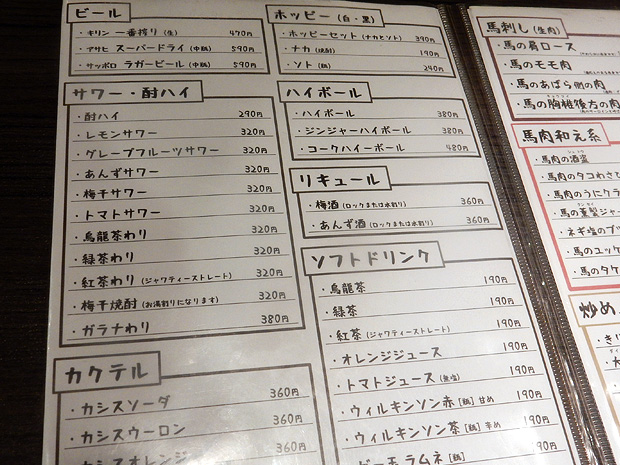 ビール
・キリン 一番搾り (生) 470円
・アサヒ スーパードライ (中瓶) 590円
・サッポロ ラガービール (中瓶) 590円
サワー・酎ハイ
・酎ハイ 290円
・レモンサワー 320円
・グレープフルーツサワー 320円
・あんずサワー 320円
・梅干サワー 320円
・トマトサワー 320円
・烏龍茶わり 320円
・緑茶わり 320円
・紅茶わり (ジャワティーストレート) 320円
・梅干焼酎 (お湯割りになります) 320円
・ガラナわり 380円
カクテル
・カシスソーダ 360円
・カシスウーロン 360円
・カシスオレンジ 360円
ホッピー (白・黒)
・ホッピーセット (ナカとソト) 390円
・ナカ (焼酎) 190円
・ソト (瓶) 240円
ハイボール
・ハイボール 380円
・ジンジャーハイボール 380円
・コークハイーボール 480円
リキュール
・梅酒 (ロックまたは水割り) 360円
・あんず酒 (ロックまたは水割り) 360円
ソフトドリンク
・烏龍茶 190円
・緑茶 190円
・紅茶 (ジャワティーストレート) 190円
・オレンジジュース 190円
・トマトジュース (無塩) 190円
・ウィルキンソン赤 [瓶] 甘め 190円
・ウィルキンソン茶 [瓶] 辛め 190円
・ビー玉ラムネ [瓶] 190円
馬刺し (生肉)
・馬の肩ロース
・馬のモモ肉
・馬のあばら側の肉
・馬の胸椎後方の肉
馬肉和え系
・馬肉の酒盗
・馬肉のタコわさび
・馬肉のうにクラ
・馬の燻製ジャー
・ネギ塩のブツ
・馬のユッケ
・馬のタケ
炒め
・きり